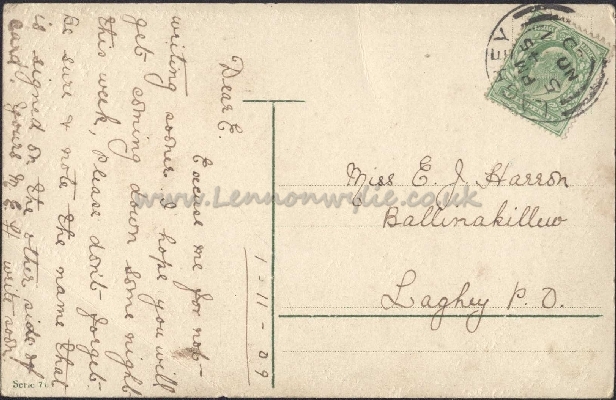 Dear E.
Excuse me for not
writing sooner I hope you will
get coming down some night
this week, Please don't forget.
Be sure & note the name that
is signed on the other side of
card, yours M. E. H.
write soon.
1-11-09
Miss E. J. Harron
Ballinakillew
Laghey P. O.
www.Lennonwylie.co.uk